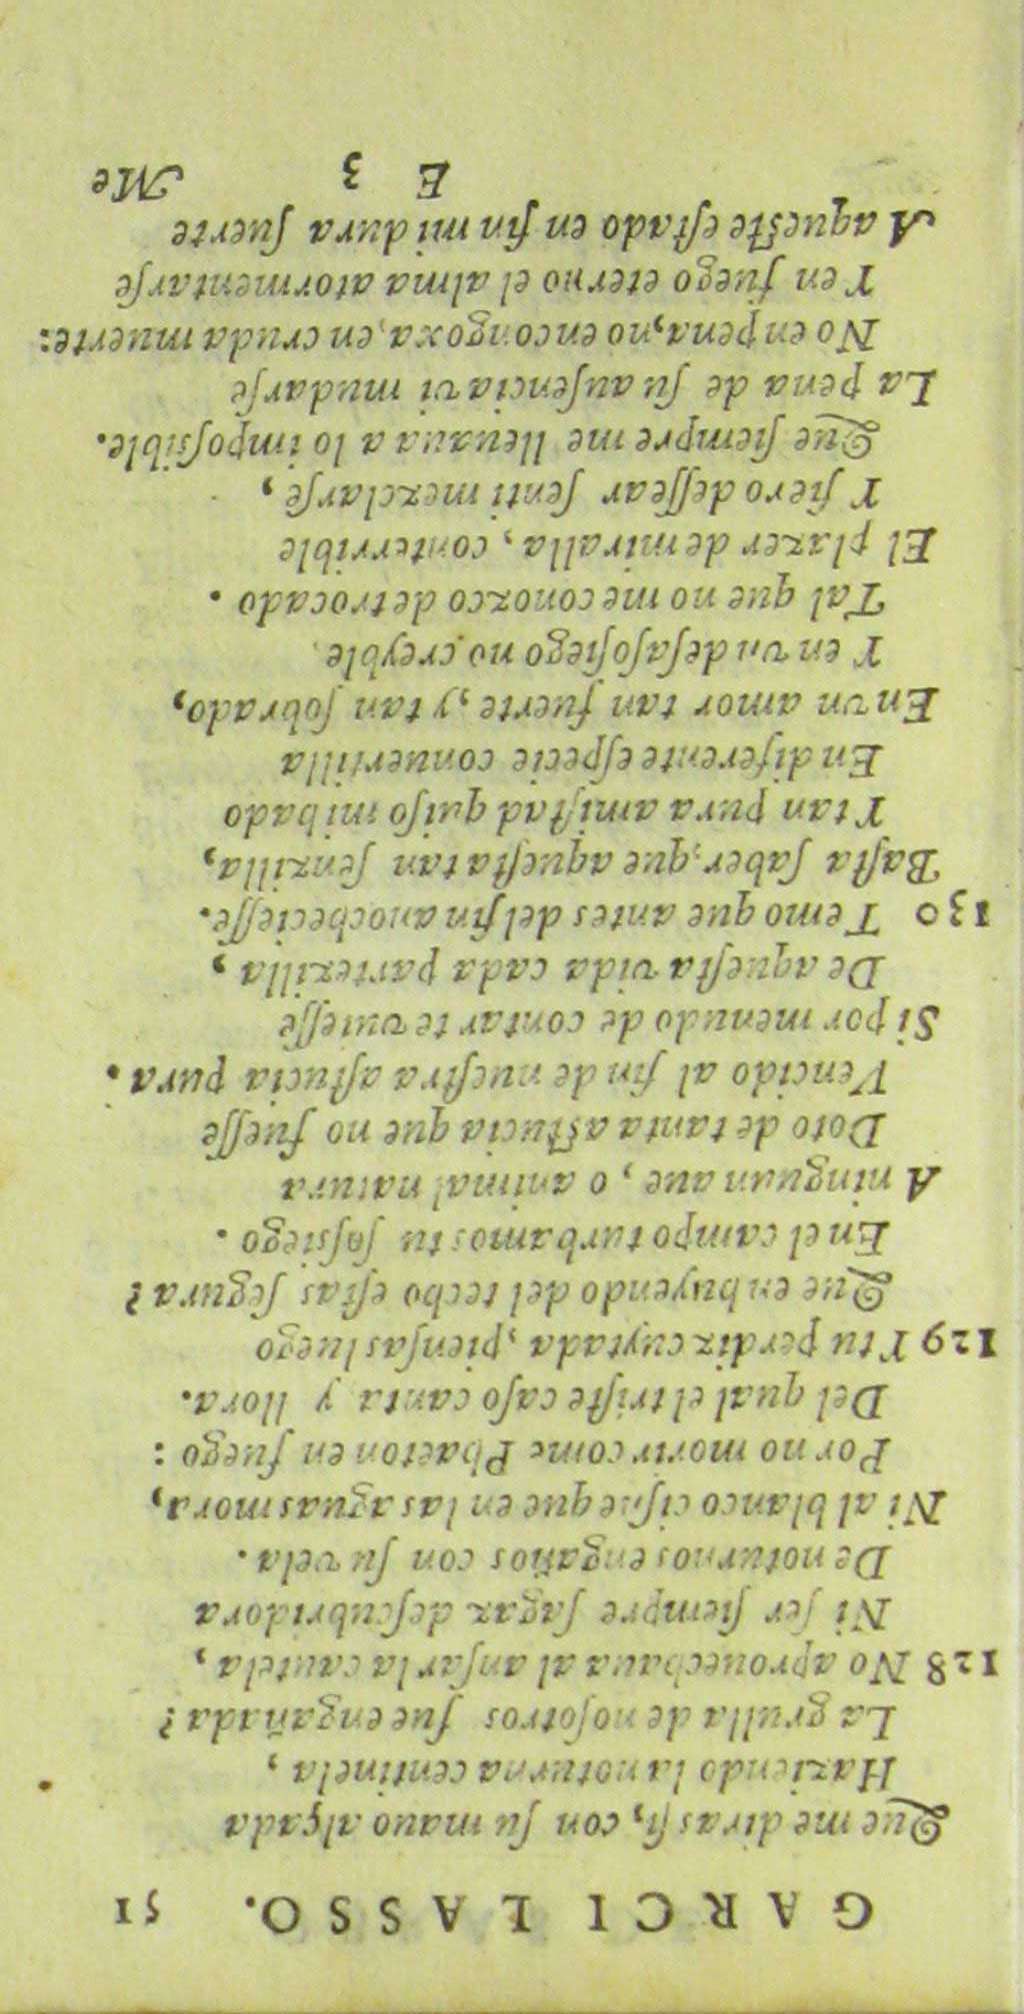 GARCI LASSO. 51
Que me diras si, con su mano alçada
Haziendo la noturna centinela,
La grulla de nosotros fue engañada?
128 No aprouechaua al ansar la cautela,
Ni ser siempre sagaz descubridora
De noturnos engaños con su vela.
Ni al blanco cisne que en las aguas mora,
Por no morir come Phaeton en fuego:
Del qual el triste caso canta y llora.
129 Y tu perdiz cuytada, piensas luego
Que en huyendo del techo estas segura?
En el campo turbamos tu sossiego.
A ningun aue, o animal natura
Doto de tanta astucia que no fuesse
Vencido al fin de nuestra astucia pura.
Si por menudo de contar te vuiesse
De aquesta vida cada partezilla,
130 Temo que antes del fin anochecießse.
Basta saber que aquesta tan senzilla,
Y tan pura amistad quiso mi hado
En diferente especie conuertilla
En vn amor tan fuerte, y tan sobrado,
Y en vn desasosiego no creyble
Tal que no me conozco de trocado.
El plazer de miralla, con terrible
Y fiero dessear senti mezclarse,
Que siempre me lleuaua a lo impossible.
La pena de su ausencia vi mudarse
No en pena, no en congoxa, en cruda muerte:
Y en fuego eterno el alma atormentarse
A aqueste estado en fin mi dura suerte
E 3 Me